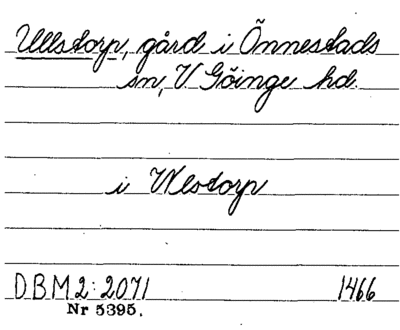 Ullstorp, gård i Önnestads
sn, V. Göinge hd.
i Wlstorp
DBM 2:2071 1466
Nr 5395.